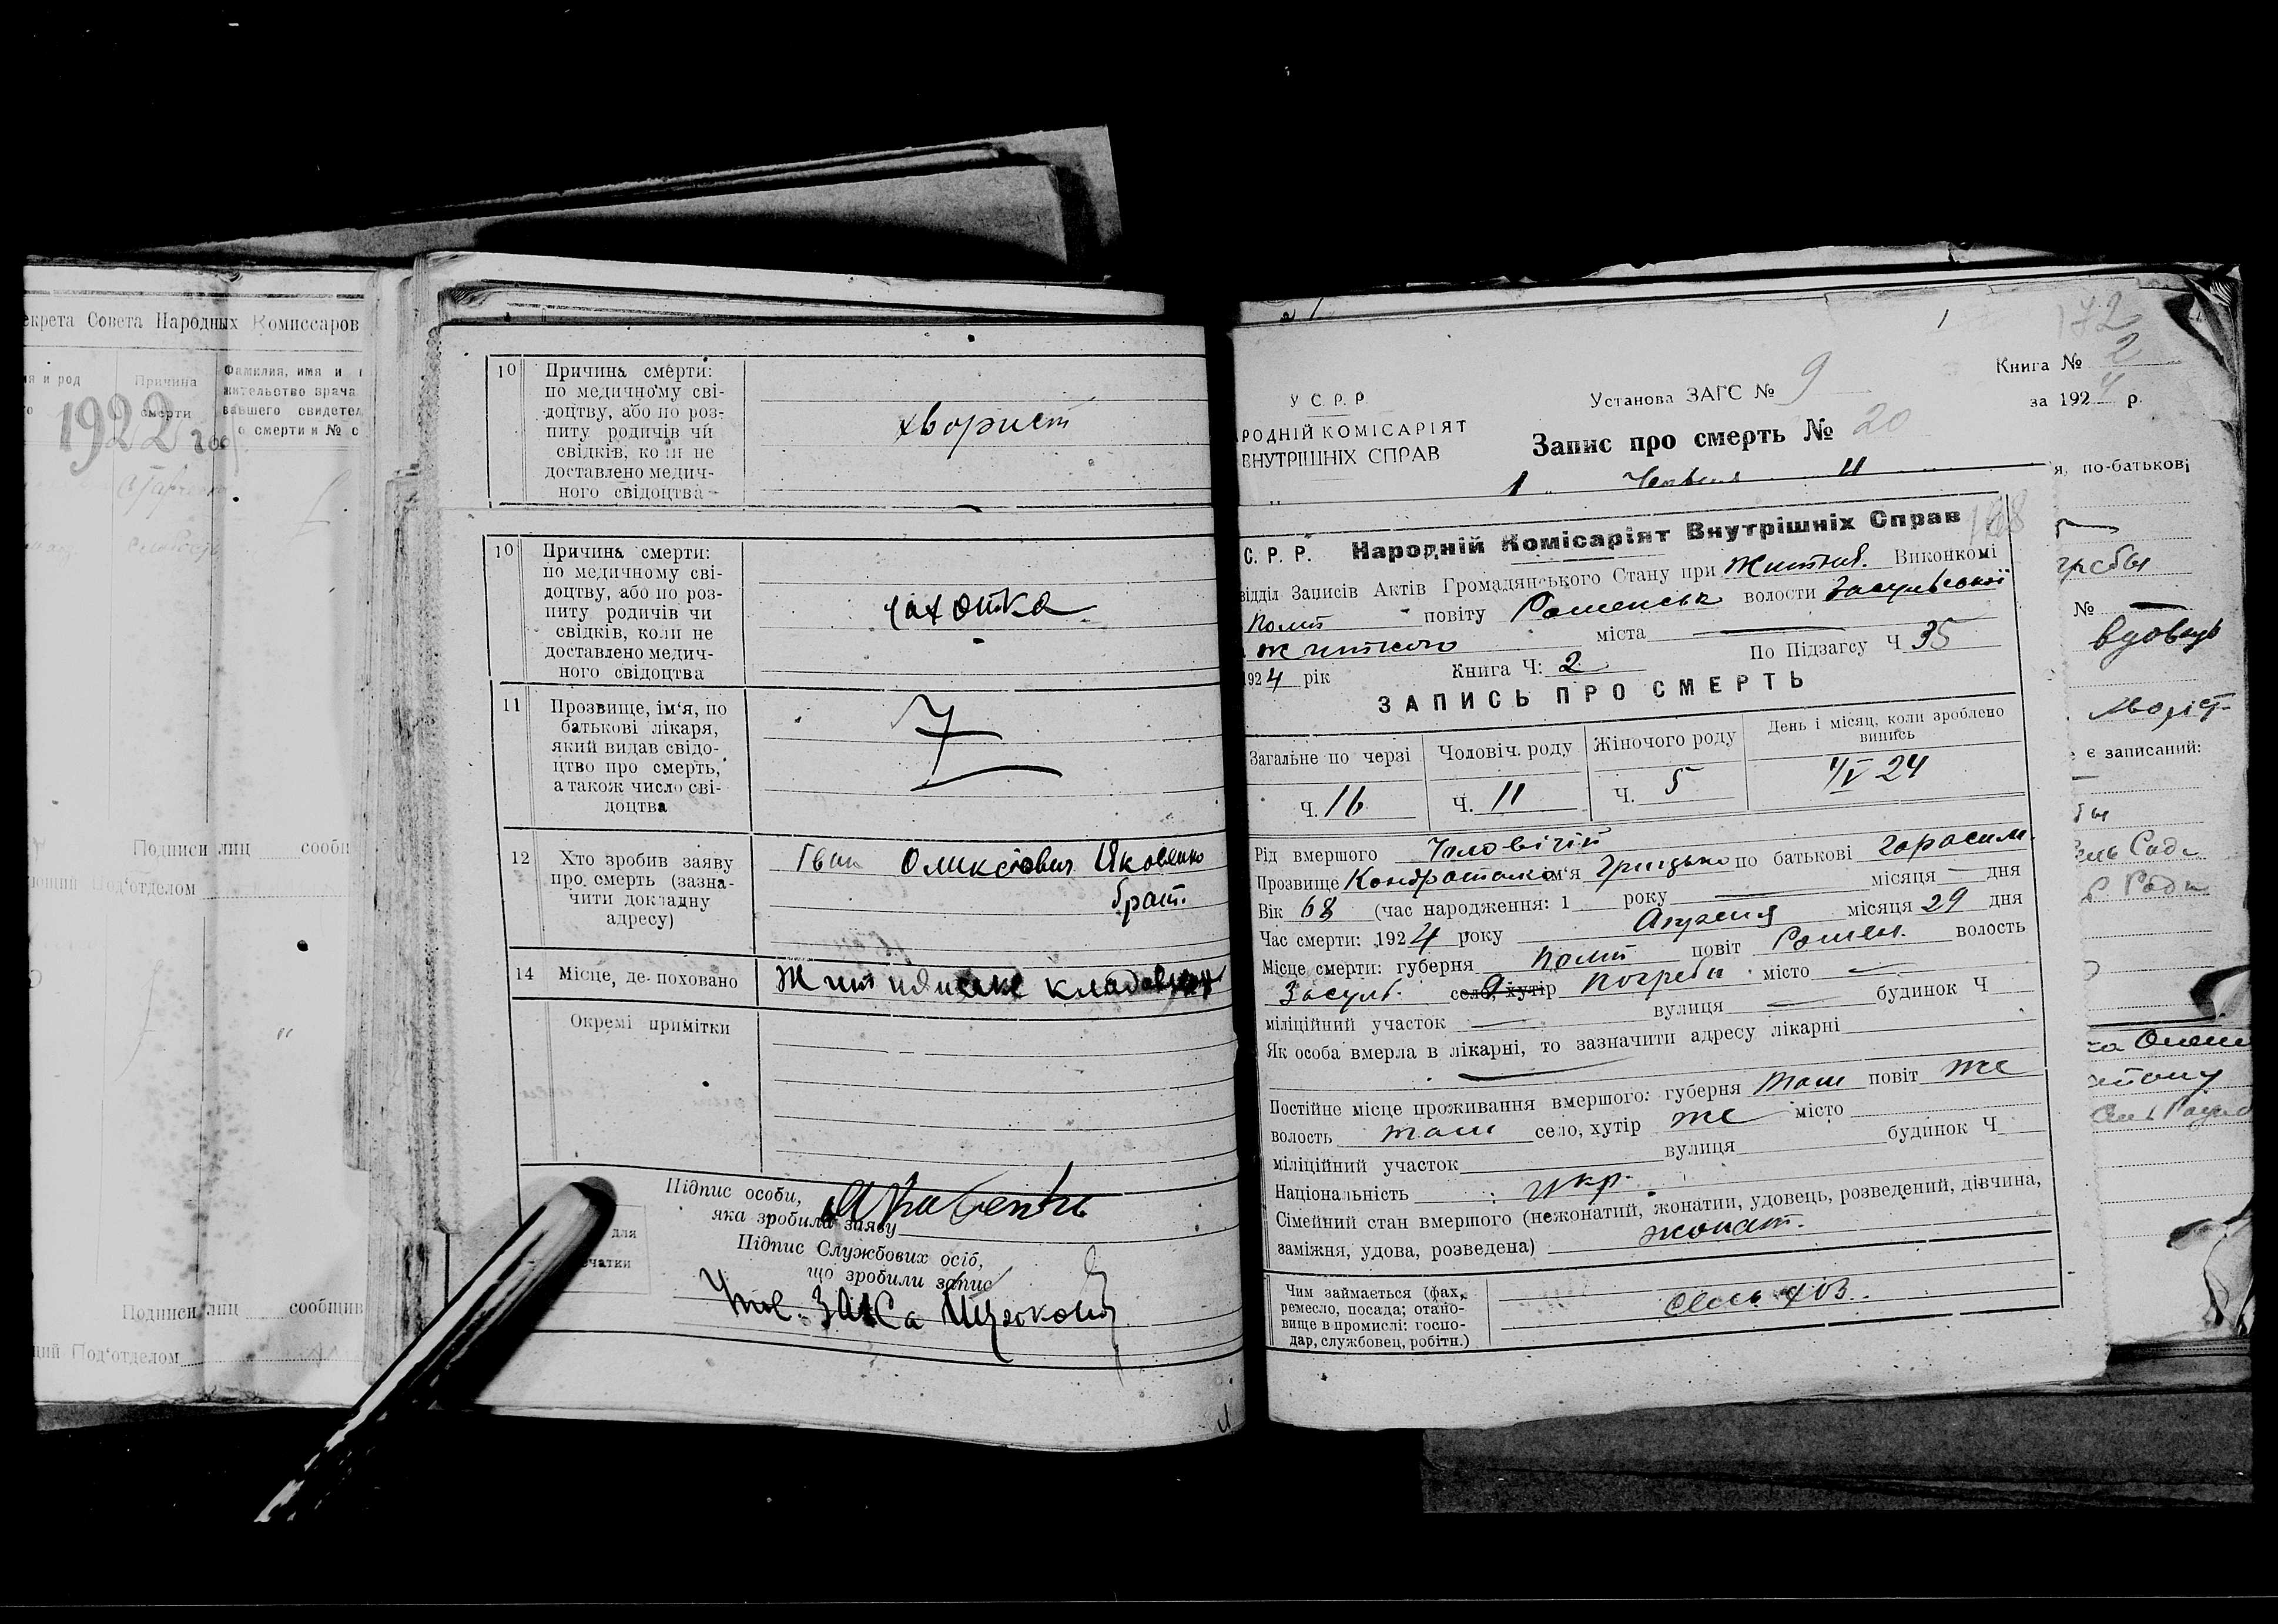 екрета Совета Народных Комиссаров
я и род
Причина
смерти
Фамилия, имя и
жительство врача
вавшего свидетел
о смерти и № с
1922 год
Подписи лиц сообщ
ющий Под'отделом
Подписи лиц сообщив
щий Под'отделом
10 Причина смерти:
по медичному сві-
доцтву, або по роз-
питу родичів чи
свідків, коли не
доставлено медич-
ного свідоцтва
10 Причина смерти:
по медичному сві-
доцтву, або по роз-
питу родичів чи
свідків, коли не
доставлено медич-
ного свідоцтва
чахотка
11 Прозвище, ім'я, по
батькові лікаря,
який видав свідо-
цтво про смерть,
а також число сві-
доцтва
12 Хто зробив заяву
про смерть (зазна-
чити докладну
адресу)
Іван Олексіович Яковенко
брат.
14 Місце, де поховано
Окремі примітки
Підпис особи,
яка зробила заяву
Підпис Службових осіб,
що зробили запис
для
чатки
172
Книга № 2
У С. Р. Р.
Установа ЗАГС № 9
за 1924 р.
РОДНІЙ КОМІСАРІЯТ
ВНУТРІШНІХ СПРАВ
Запис про смерть № 20
1 Червня
я, по-батькові
168
С. Р. Р. Народній Комісаріят Внутрішніх Справ
відділ Записів Актів Громадянського Стану при Житнян. Виконкомі
Полт повіту Роменськ волости Засульської
Житного міста —
1924 рік Книга Ч: 2 По Підзагсу Ч 35
ЗАПИСЬ ПРО СМЕРТЬ
Загальне по черзі
Чоловіч. роду
Жіночого роду
День і місяц, коли зроблено
випись
Ч. 16
Ч. 11
Ч. 5
Рід вмершого Чоловічій
Прозвище Кондратенко ім'я Грицько по батькові Гарасим.
Вік 68 (час народження: 1 року — місяця — дня
Час смерти: 1924 року Апреля місяця 29 дня
Місце смерти: губерня Полт повіт Ромен. волость
Засульс. село, хутір Погреби місто —
міліційний участок — вулиця — будинок Ч
Як особа вмерла в лікарні, то зазначити адресу лікарні
Постійне місце проживання вмершого: губерня Там повіт же
волость там село, хутір же місто
міліційний участок вулиця будинок Ч
Національність Укр.
Сімейний стан вмершого (нежонатий, жонатий, удовець, розведений, дівчина,
заміжня, удова, розведена) жонат.
Чим займається (фах,
ремесло, посада; стано-
вище в промислі: госпо-
дар, службовец, робітн.)
№ —
вдовець
є записаний: